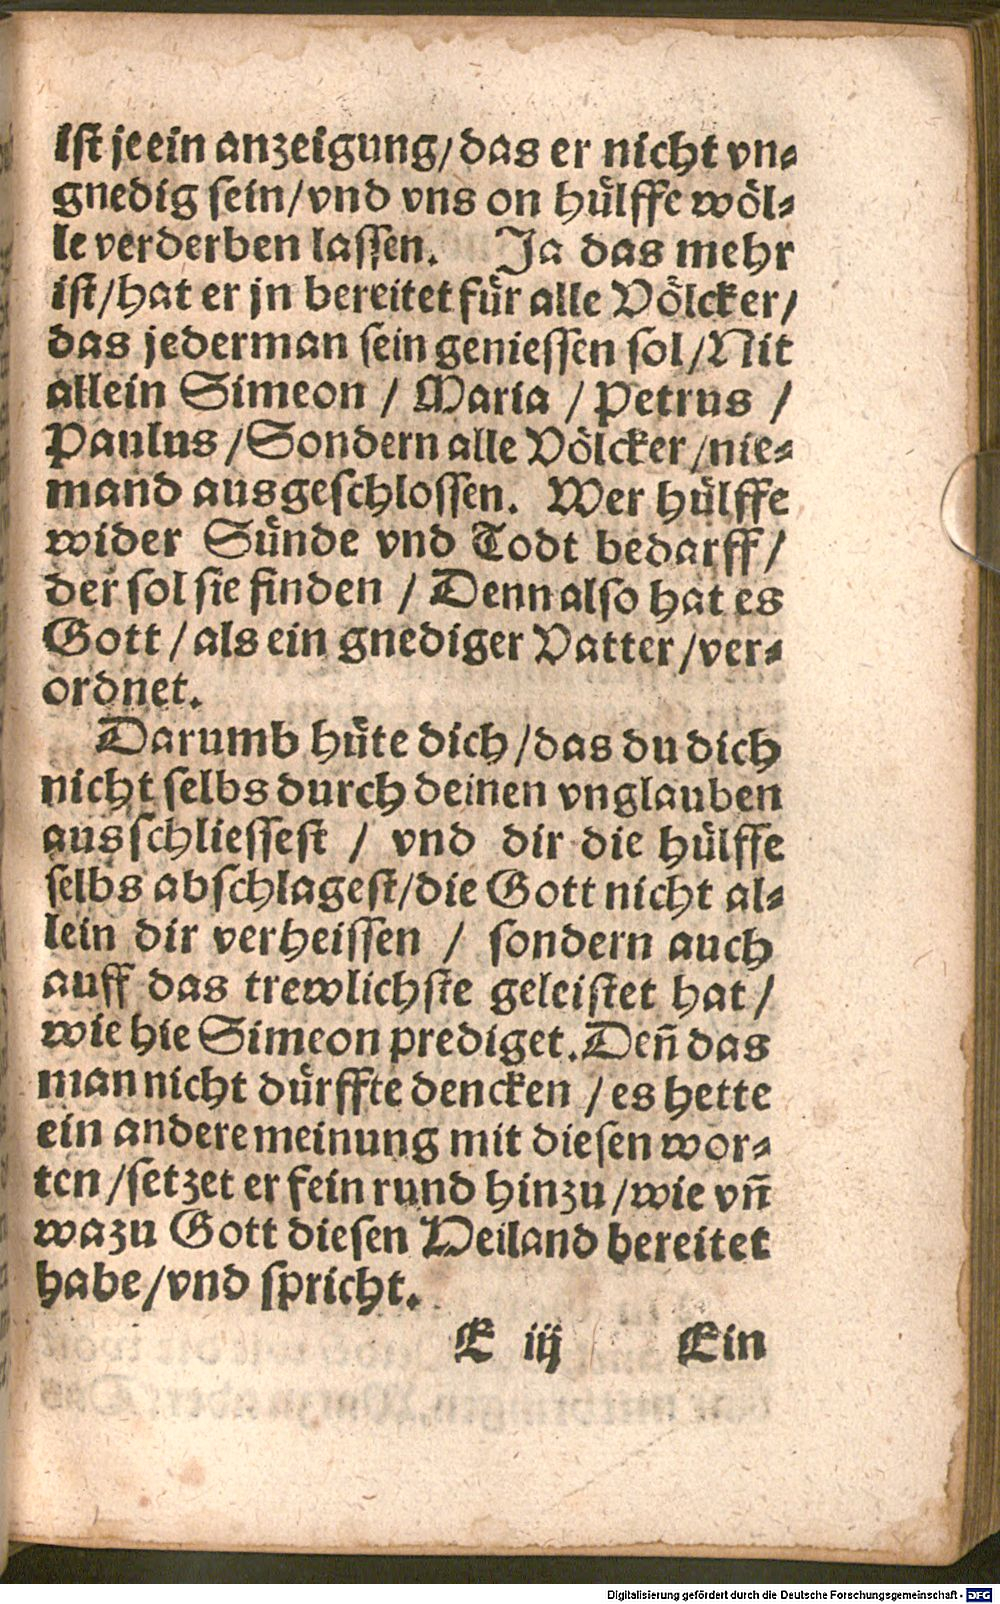 ist je ein anzeigung/das er nicht vn⸗
gnedig sein/vnd vns on hülffe wöl⸗
le verderben lassen. Ja das mehr
ist/hat er jn bereitet für alle Völcker/
das jederman sein geniessen sol/Nit
allein Simeon / Maria / Petrus /
Paulus /Sondern alle Völcker/nie⸗
mand ausgeschlossen. Wer hülffe
wider Sünde vnd Todt bedarff/
der sol sie finden / Denn also hat es
Gott / als ein gnediger Vatter/ver⸗
ordnet.
Darumb hüte dich/das du dich
nicht selbs durch deinen vnglauben
ausschliessest / vnd dir die hülffe
selbs abschlagest/die Gott nicht al⸗
lein dir verheissen / sondern auch
auff das trewlichste geleistet hat/
wie hie Simeon prediget. Deñ das
man nicht dürffte dencken / es hette
ein andere meinung mit diesen wor⸗
ten /setzet er fein rund hinzu/wie vñ
wazu Gott diesen Heiland bereitet
habe/vnd spricht.
E iij Ein
Digitalisierung gefördert durch die Deutsche Forschungsgemeinschaft - DFG